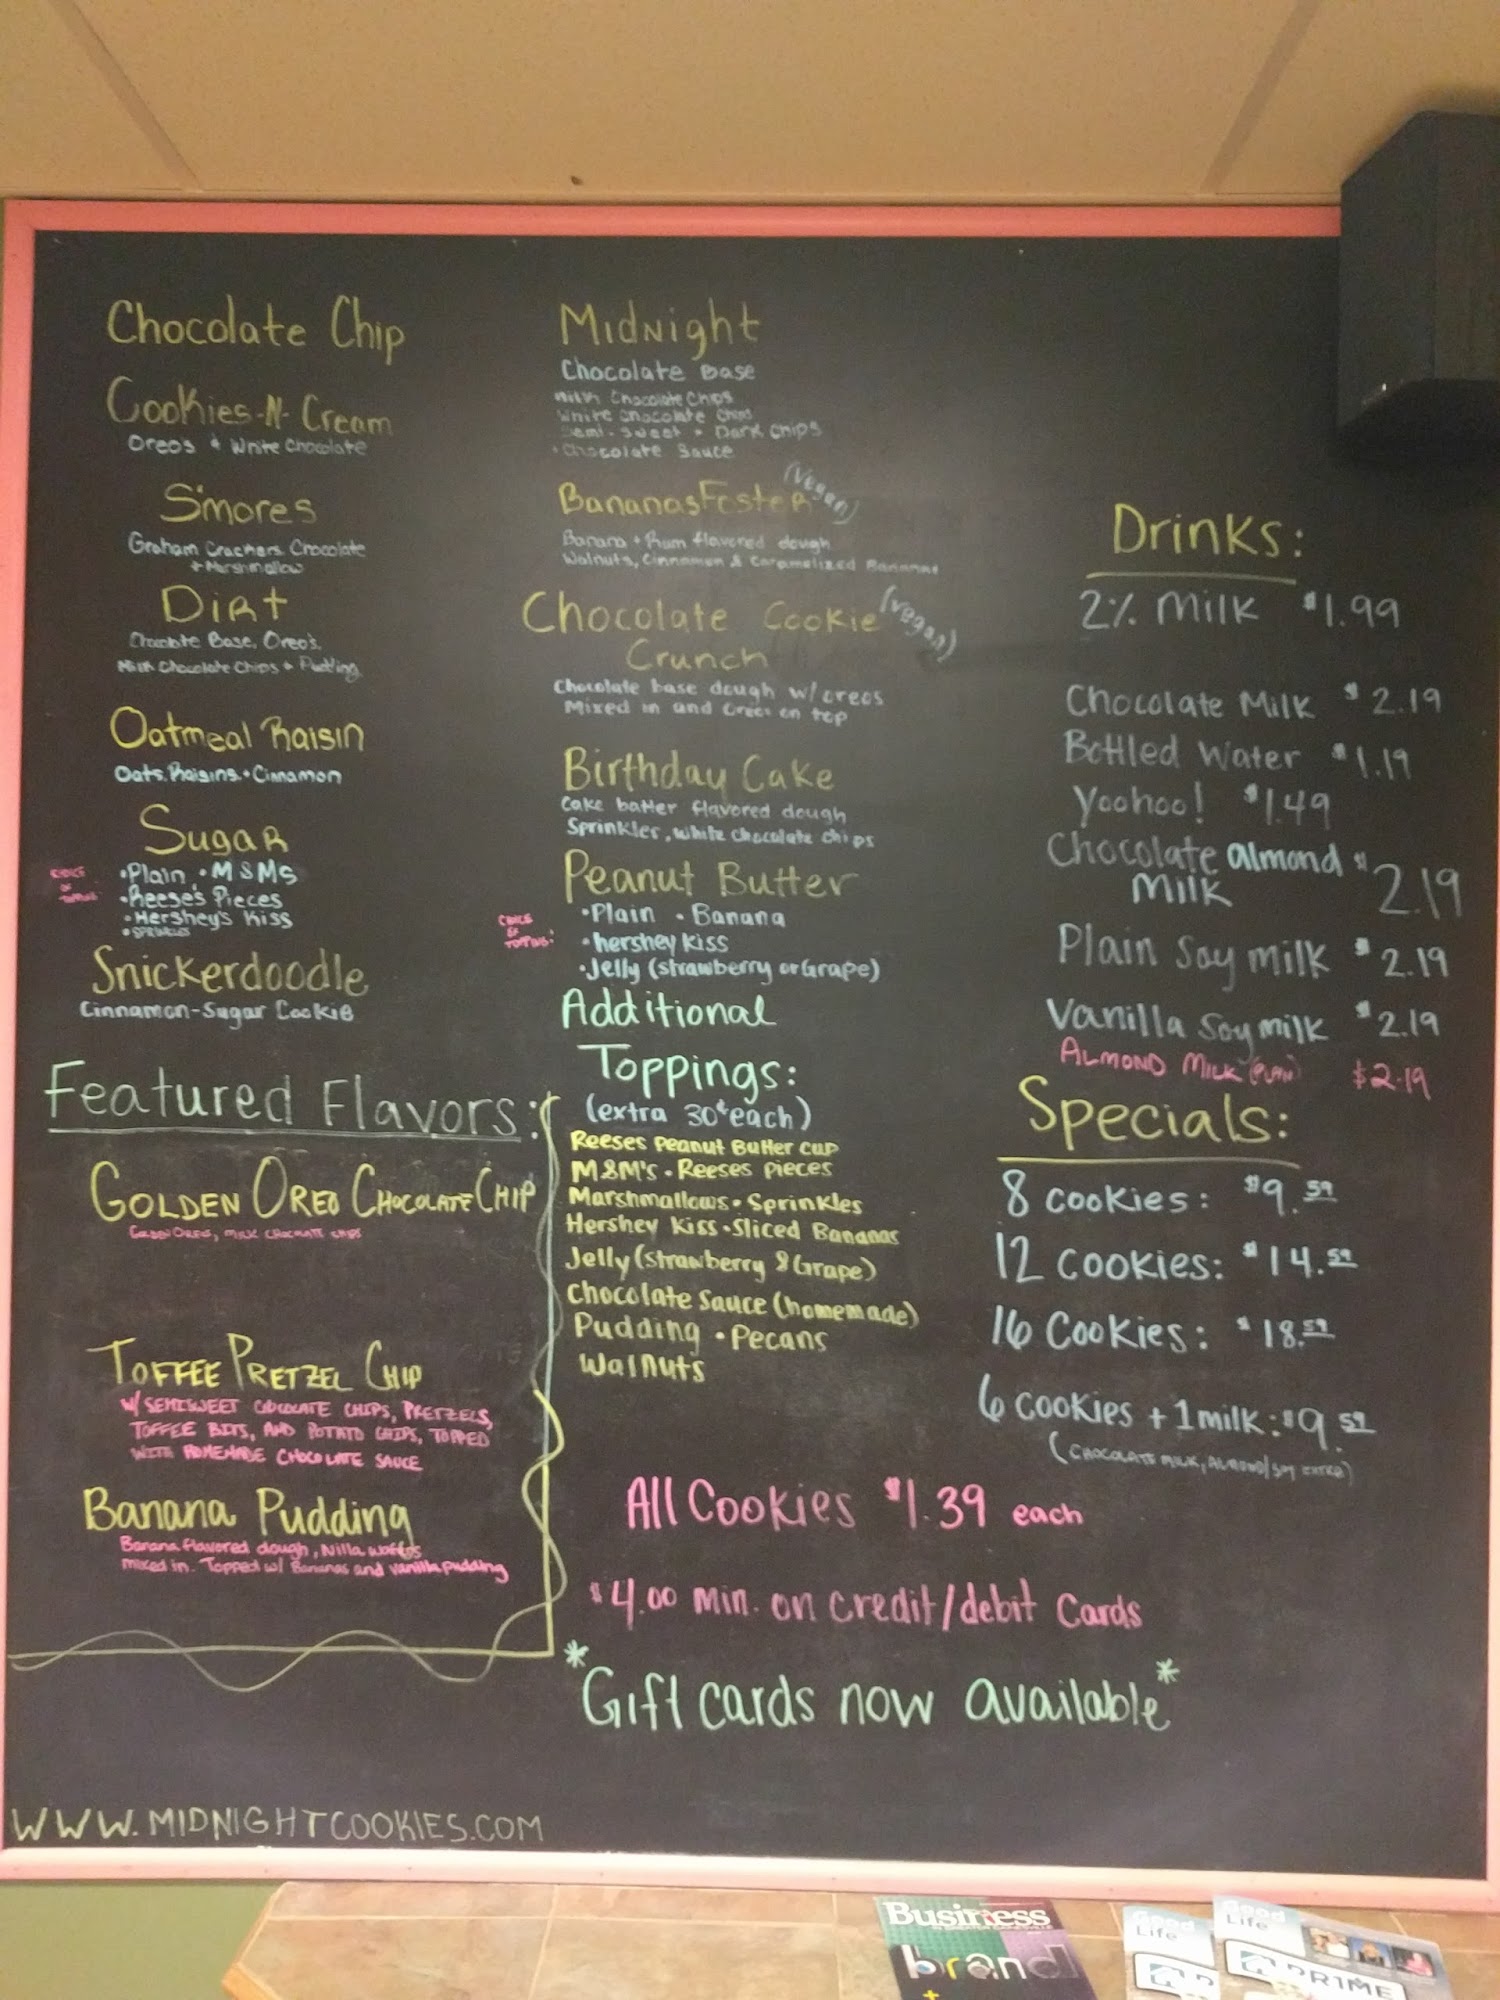 Chocolate Chip
Cookies-N-Cream
Oreo's + White Chocolate
S'mores
Graham Crackers, Chocolate
+ Marshmallow
Dirt
Chocolate Base, Oreo's,
Milk Chocolate Chips + Pudding
Oatmeal Raisin
Oats, Raisins + Cinnamon
Sugar
CHOICE
OF
TOPPING:
•Plain •M&Ms
•Reese's Pieces
•Hershey's Kiss
•SPRINKLES
Snickerdoodle
Cinnamon-Sugar Cookie
Featured Flavors:
GOLDEN OREO CHOCOLATE CHIP
GOLDEN OREOS, MILK CHOCOLATE CHIPS
TOFFEE PRETZEL CHIP
W/ SEMISWEET CHOCOLATE CHIPS, PRETZELS,
TOFFEE BITS, AND POTATO CHIPS, TOPPED
WITH HOMEMADE CHOCOLATE SAUCE
Banana Pudding
Banana flavored dough, Nilla wafers
mixed in. Topped w/ Bananas and vanilla pudding
WWW.MIDNIGHTCOOKIES.COM
Midnight
Chocolate Base
Milk Chocolate Chips
White Chocolate Chips
Semi-Sweet + Dark Chips
+ Chocolate Sauce
Bananas Foster (vegan)
Banana + Rum flavored dough
Walnuts, Cinnamon & Caramelized Bananas
Chocolate Cookie (vegan)
Crunch
Chocolate base dough w/ oreos
Mixed in and oreos on top
Birthday Cake
Cake batter flavored dough
Sprinkles, white chocolate chips
Peanut Butter
CHOICE
OF
TOPPING:
•Plain •Banana
•hershey kiss
•Jelly (strawberry or Grape)
Additional
Toppings:
(extra 30¢ each)
Reeses Peanut Butter cup
M&M's • Reeses pieces
Marshmallows • Sprinkles
Hershey Kiss • Sliced Bananas
Jelly (strawberry & Grape)
Chocolate Sauce (homemade)
Pudding • Pecans
Walnuts
Drinks:
2% Milk $1.99
Chocolate Milk $2.19
Bottled Water $1.19
Yoohoo! $1.49
Chocolate almond $2.19
Milk
Plain Soy milk $2.19
Vanilla Soy milk $2.19
ALMOND MILK (PLAIN) $2.19
Specials:
8 cookies: $9.59
12 cookies: $14.59
16 cookies: $18.59
6 cookies + 1 milk: $9.59
(CHOCOLATE MILK, ALMOND/SOY EXTRA)
All Cookies $1.39 each
$4.00 min. on credit/debit Cards
*Gift cards now available*
Business
brand
+
Good
Life
Good
Life
PR1ME